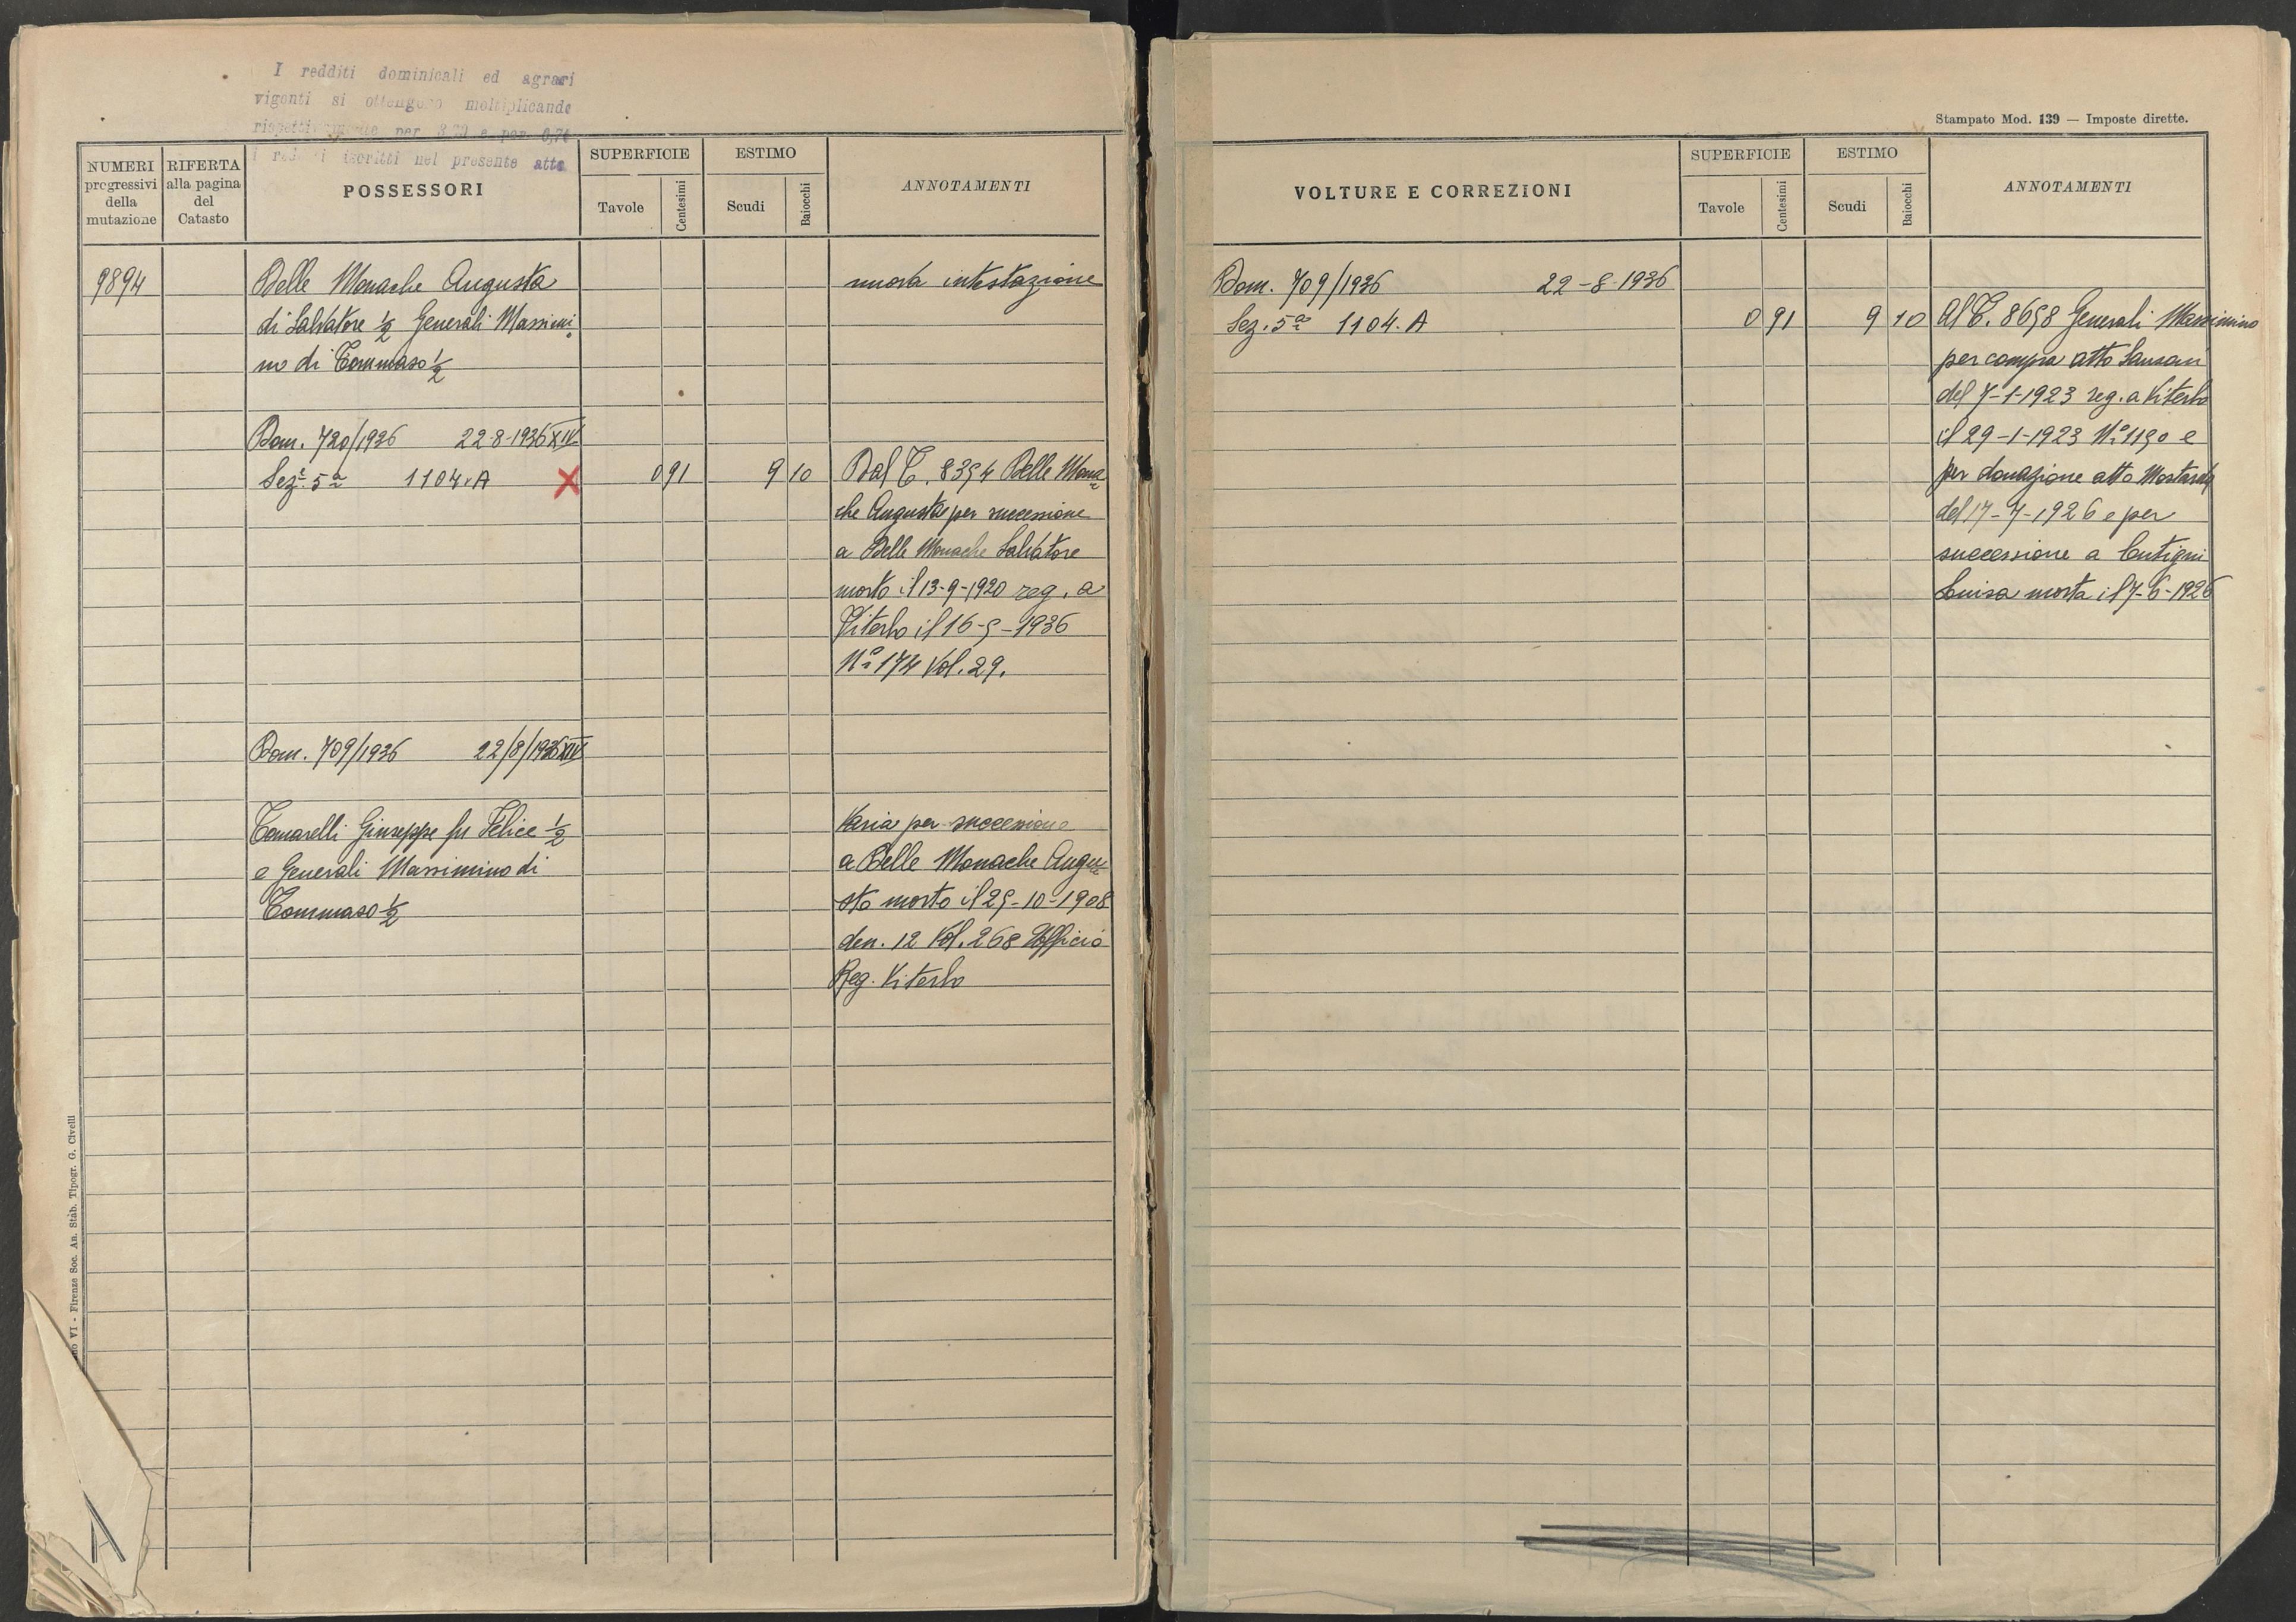 I redditi dominicali ed agrari
vigenti si ottengono moltiplicando
rispettivamente per 3,20 e per 0,70
i redditi iscritti nel presente atto
NUMERI progressivi della mutazione
RIFERTA alla pagina del Catasto
POSSESSORI
SUPERFICIE
Tavole
Centesimi
ESTIMO
Scudi
Baiocchi
ANNOTAMENTI
9894 Delle Monache Augusta nuova intestazione
di Salvatore 1/2 Generali Massimi
no di Tommaso 1/2
Dom. 720/1936 22-8-1936 XIV
Sez. 5a 1104.A X 0 91 9 10 Dal C. 8394 Delle Mona
che Augusta per successione
a Delle Monache Salvatore
morto il 13-9-1920 reg. a
Viterbo il 16-5-1936
No 174 Vol. 29.
Dom. 709/1936 22/8/1936 XIV
Tomarelli Giuseppe fu Felice 1/2 Varia per successione
e Generali Massimino di a Delle Monache Augu
Tommaso 1/2 sto morto il 25-10-1908
den. 12 Vol. 268 Ufficio
Reg. Viterbo
Firenze Soc. An. Stab. Tipogr. G. Civelli
Stampato Mod. 139 — Imposte dirette.
VOLTURE E CORREZIONI
SUPERFICIE
Tavole
Centesimi
ESTIMO
Scudi
Baiocchi
ANNOTAMENTI
Dom. 709/1936 22-8-1936
Sez. 5a 1104.A 0 91 9 10 Al C. 8658 Generali Massimino
per compra atto
del 7-1-1923 reg. a Viterbo
il 29-1-1923 No 1190 e
per donazione atto
del 17-7-1926 e per
successione a Cutigni
Luisa morta il 7-6-1926